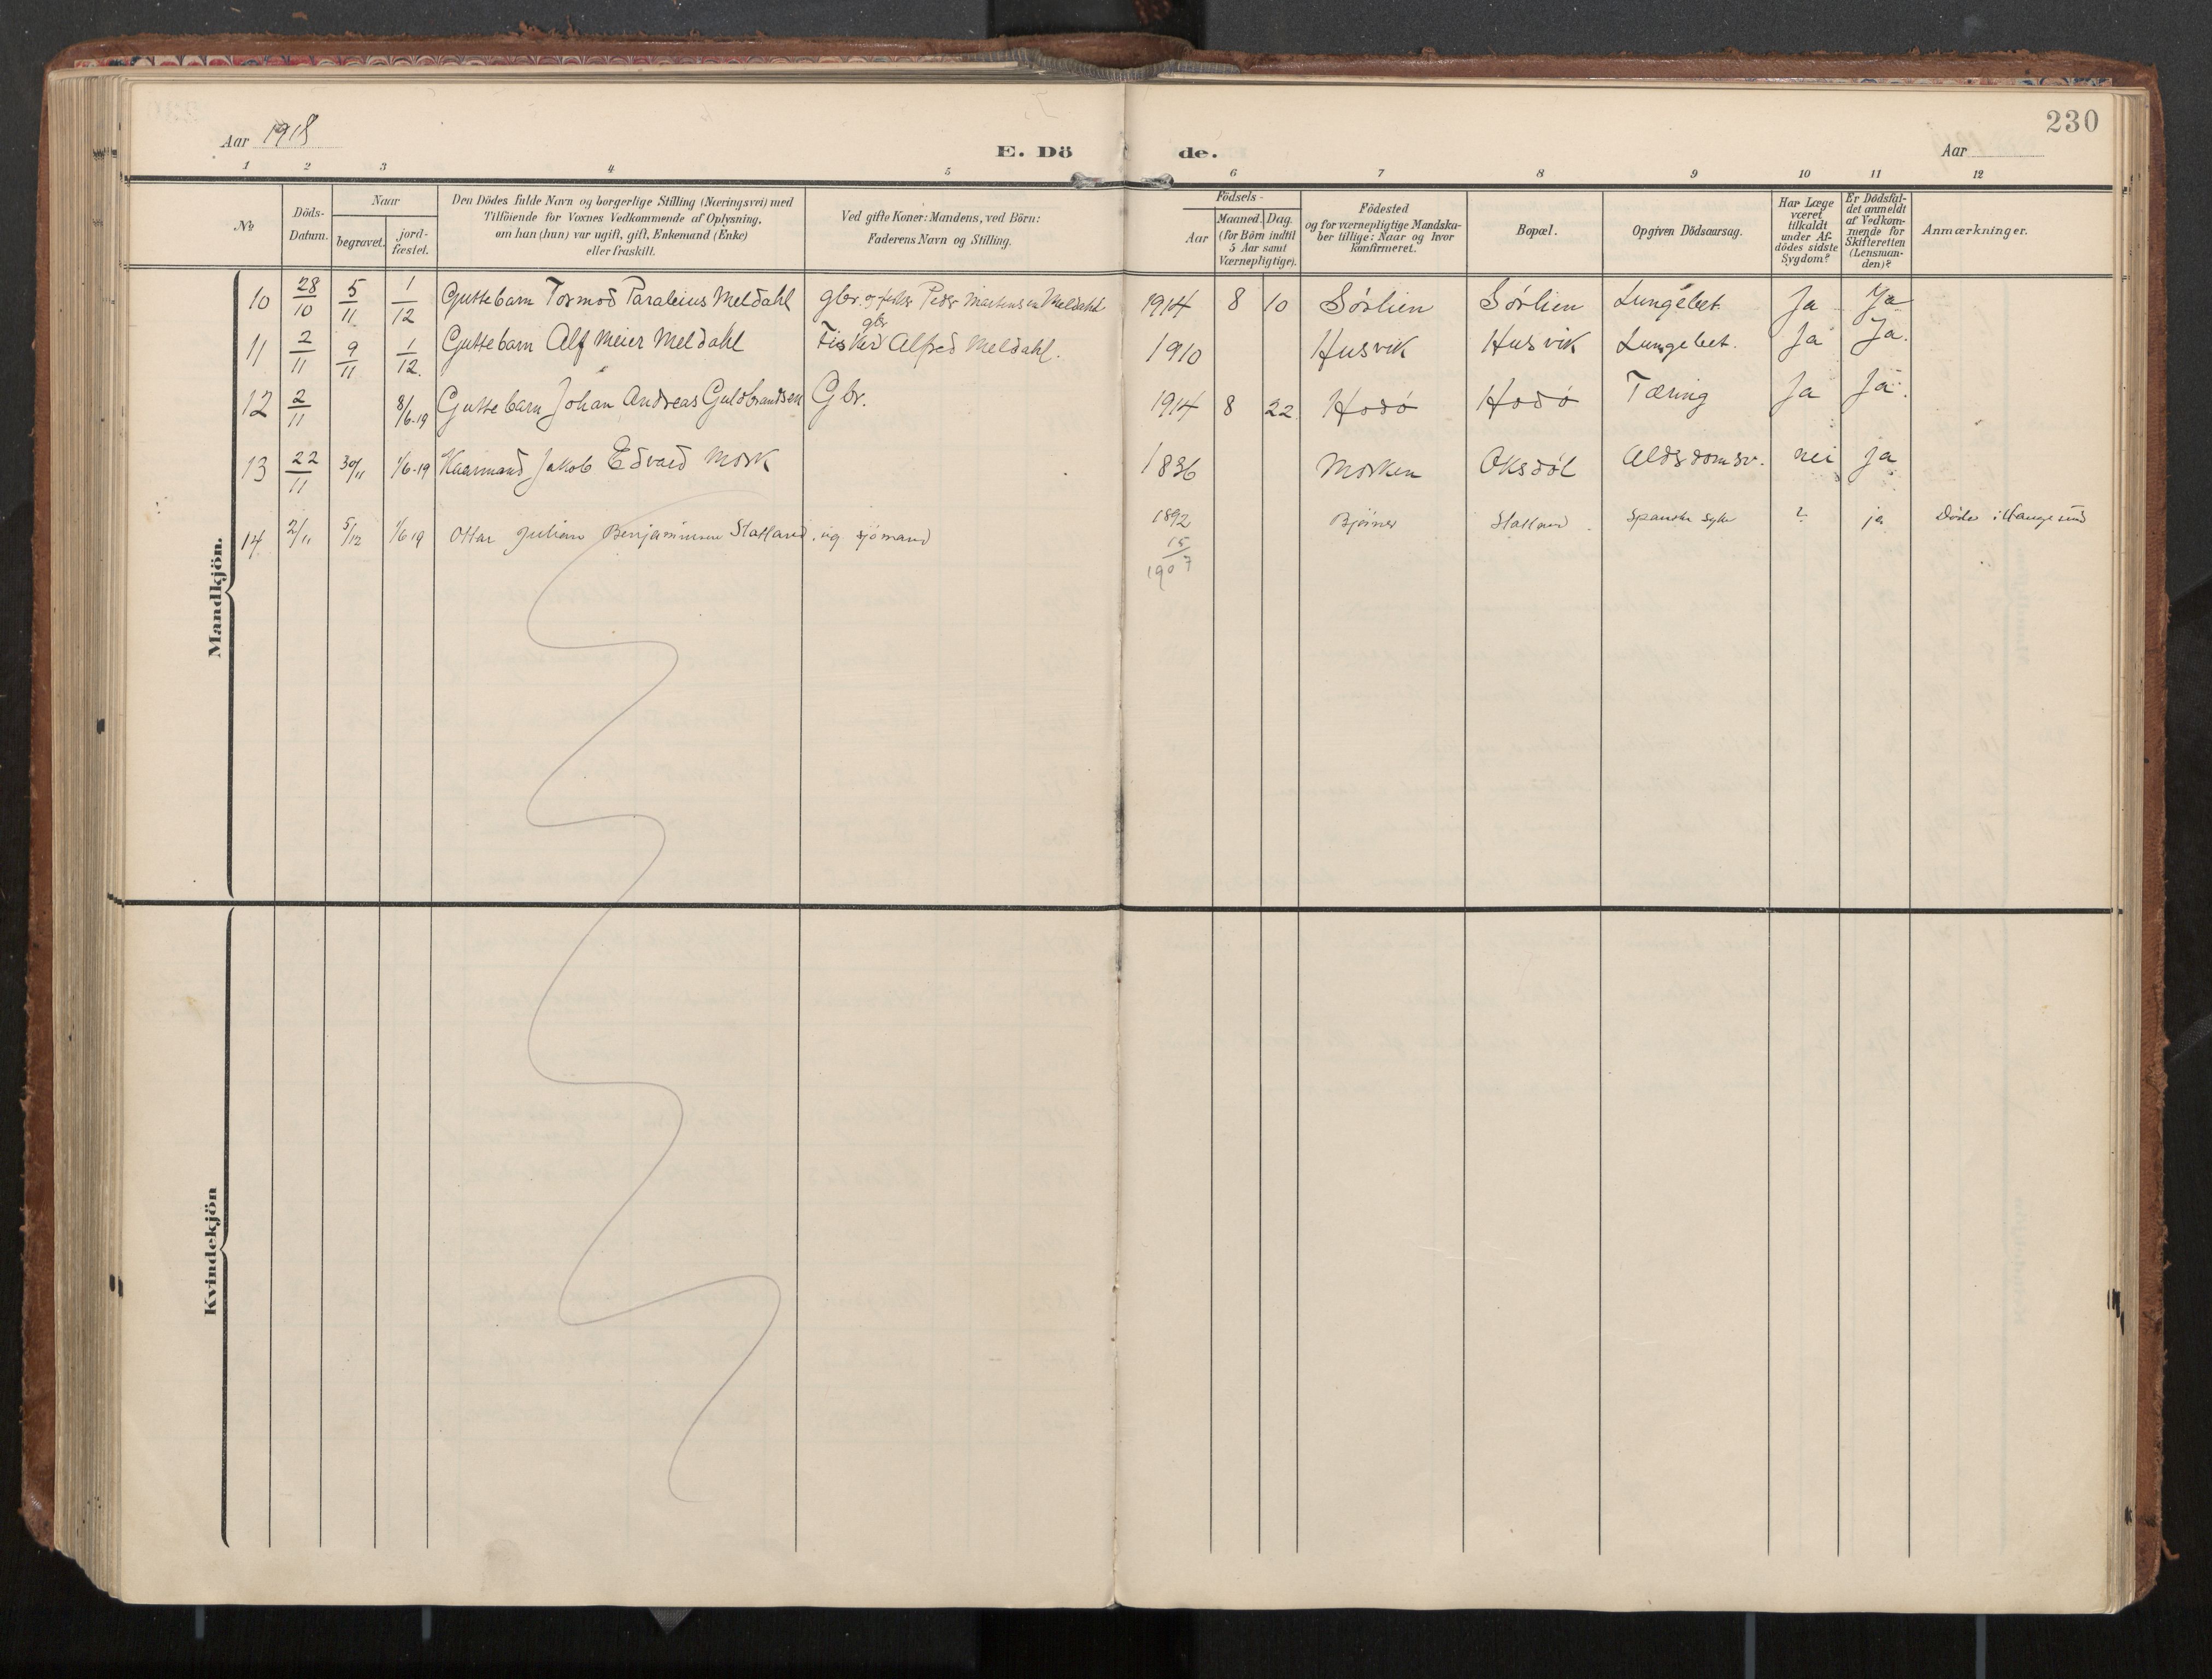 230
Aar 1918
E. Dö de.
Aar
1 2 3 4 5 6 7 8 9 10 11 12
No
Döds-Datum.
Naar
begravet.
jord-fæstet.
Den Dödes fulde Navn og borgerlige Stilling (Næringsvei) med
Tilföiende for Voxnes Vedkommende af Oplysning,
om han (hun) var ugift, gift, Enkemand (Enke)
eller fraskilt.
Ved gifte Koner: Mandens, ved Börn:
Faderens Navn og Stilling.
Födsels-
Aar
Maaned. Dag.
(for Börn indtil
5 Aar samt
Værnepligtige).
Födested
og for værnepligtige Mandska-
ber tillige: Naar og hvor
konfirmeret.
Bopæl.
Opgiven Dödsaarsag.
Har Læge
været
tilkaldt
under Af-
dödes sidste
Sygdom?
Er Dödsfal-
det anmeldt
af Vedkom-
mende for
Skifteretten
(Lensman-
den)?
Anmærkninger.
Mandkjön.
10 28/10 5/11 1/12 Guttebarn Tormod Paraleius Meldahl gbr. og fisker Peder Martinsen Meldahl 1914 8 10 Sörlien Sörlien Lungebet. Ja Ja
gbr
11 2/11 9/11 1/12. Guttebarn Alf Meier Meldahl Fisker Alfred Meldahl. 1910 Husvik Husvik Lungebet. Ja Ja.
12 2/11 8/6-19 Guttebarn Johan Andreas Guldbrandsen Gbr. 1914 8 22 Hodö Hodö Tæring Ja Ja.
13 22/11 30/11 1/6-19 Kaarmand Jakob Edvard Mork 1836 Morken Oksdöl Aldsdomsv. nei ja
14 2/11 5/12 1/6 19 Ottar Julian Benjaminsen Statland, ug sjömand 1892 Bjöines Statland Spanske syke ? ja Döde i Haugesund
15/1907
Kvindekjön